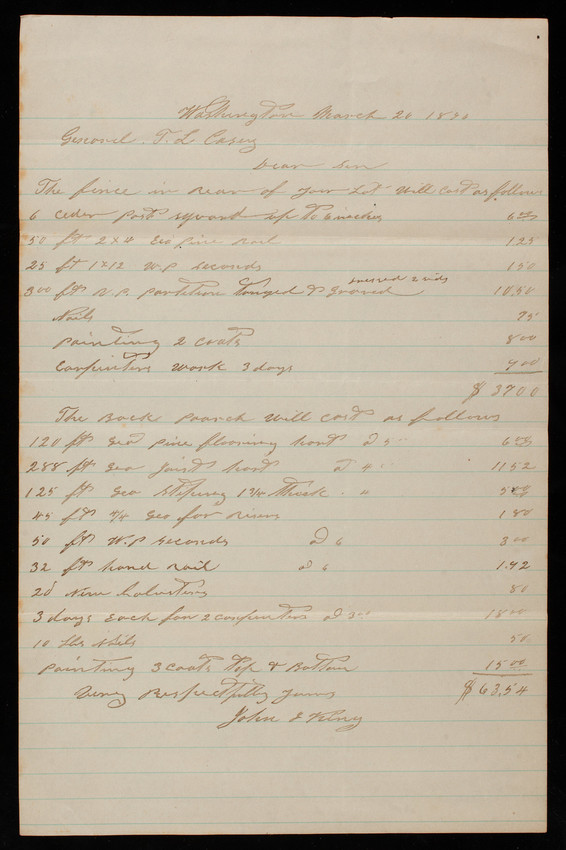 Washington March 20 1890
General. T. L Casey
Dear Sir
The fince in Rear of your Lot will Cost as follows
6 Ceder Post squard up to 6 inches 6 00
50 ft 2x4 Geo Pine rail 1 25
25 ft 1x12 W.P seconds 1 50
300 ft N.P. partition tongued & groved dressed 2 sids 10.50
Nails 75
Painting 2 Coats 8 00
Carpinters Work 3 days 9 00
$ 37 00
The Back Poarch Will Cost as follows
120 ft Geo pine flooring hart @ 5 6 00
288 ft Geo Joist hart @ 4 11 52
125 ft Geo steping 1 1/4 thick . " 5 00
45 ft 4/4 Geo for Risers 1 80
50 ft W.P seconds @ 6 3 00
32 ft hand rail @ 6 1.92
20 New balusters 80
3 days Each for 2 carpinters @ 3 00 18 00
10 Lbs Nails 50
Painting 3 Coats Top & Bottom 15 00
Very Respectfully yours $ 63.54
John